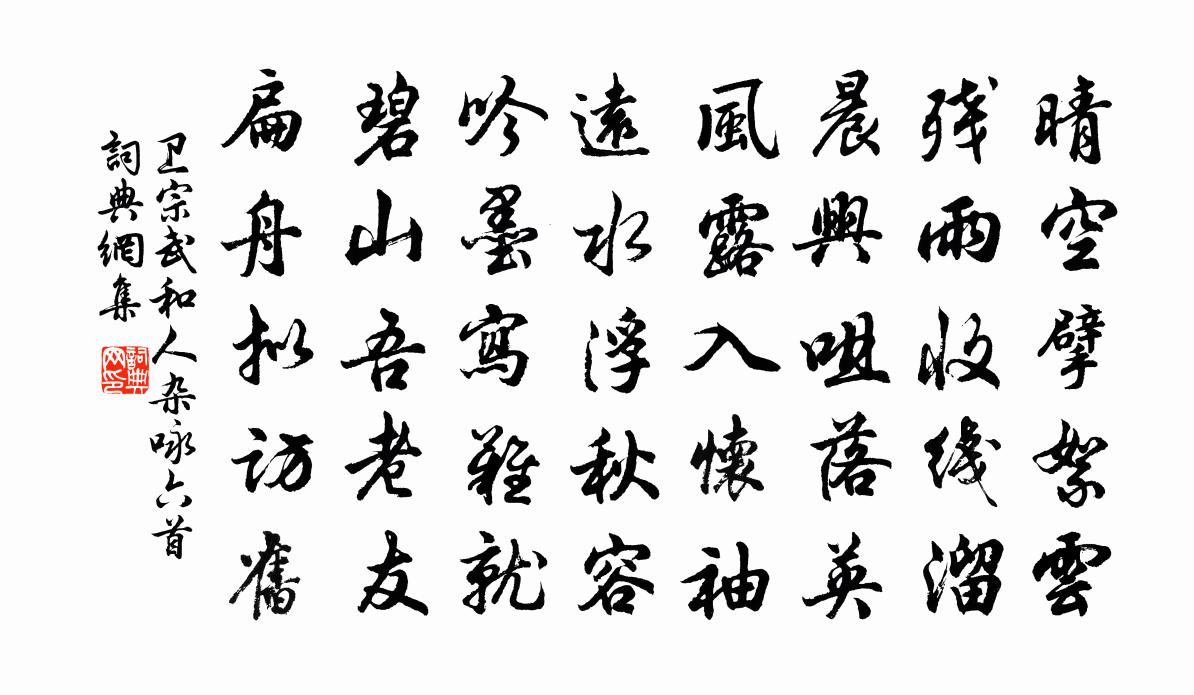 晴空擘絮雲
残雨收线溜
晨興咀落英
風露入懷袖
遠水浮秋容
吟墨寫難就
碧山吾老友
扁舟拟訪舊
卫宗武和人杂咏六首
詞典網集
詞典网印